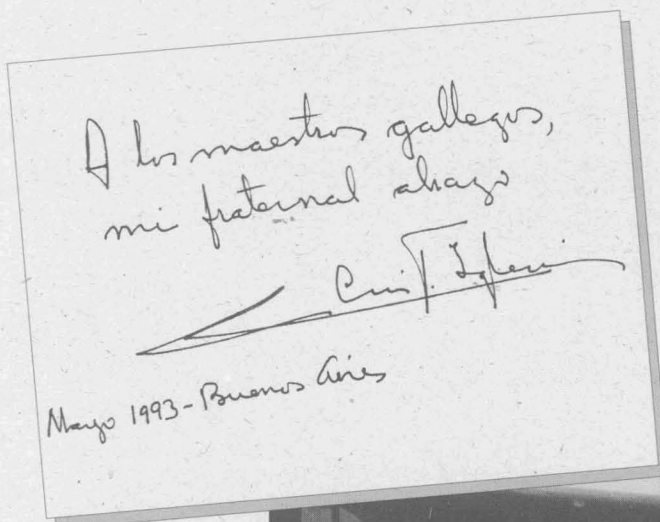 A los maestros gallegos,
mi fraternal abrazo
Luis F. Iglesias
Mayo 1993 - Buenos Aires